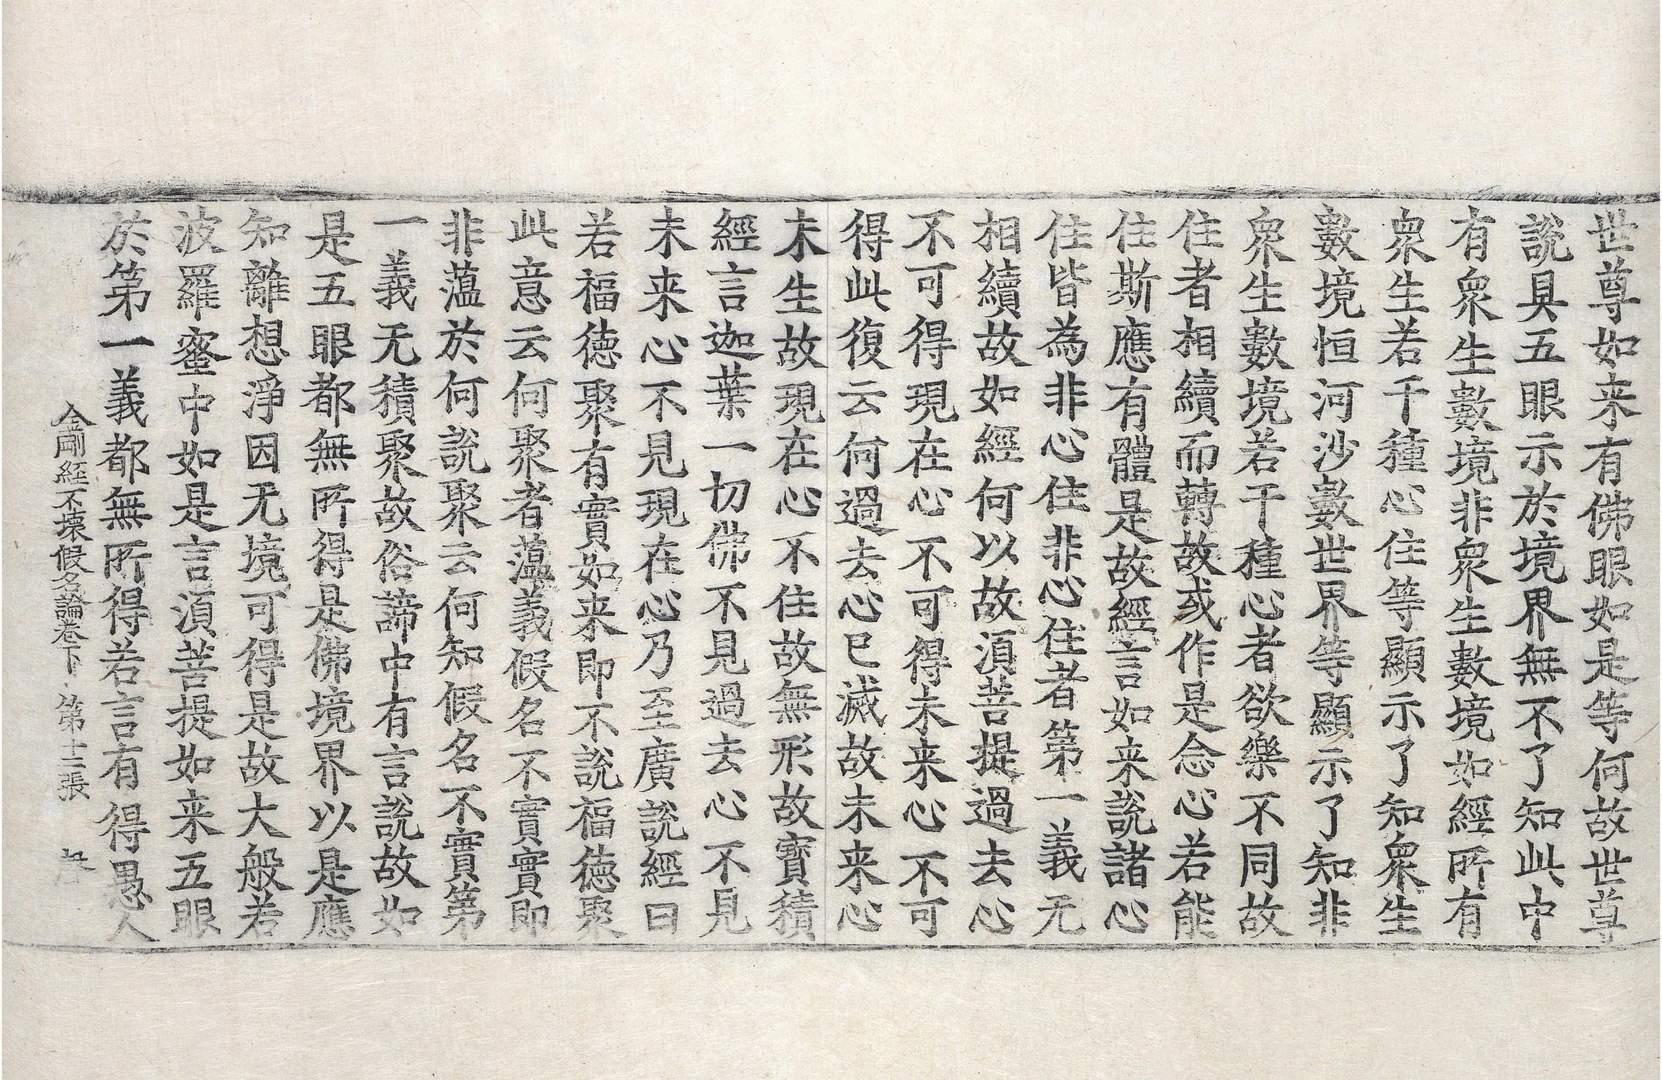 世尊如来有佛眼如是等何故世尊
說具五眼示於境界無不了知此中
有衆生數境非衆生數境如經所有
衆生若干種心住等顯示了知衆生
數境恒河沙數世界等顯示了知非
衆生數境若干種心者欲樂不同故
住者相續而轉故或作是念心若能
住斯應有體是故經言如来說諸心
住皆為非心住非心住者第一義无
相續故如經何以故湏菩提過去心
不可得現在心不可得未来心不可
得此復云何過去心已滅故未来心
未生故現在心不住故無形故寶積
經言迦葉一切佛不見過去心不見
未来心不見現在心乃至廣說經曰
若福德聚有實如来即不說福德聚
此意云何聚者薀義假名不實實即
非薀於何說聚云何知假名不實第
一義无積聚故俗諦中有言說故如
是五眼都無所得是佛境界以是應
知離想淨因无境可得是故大般若
波羅蜜中如是言湏菩提如来五眼
於第一義都無所得若言有得愚人
金剛經不壞假名論卷下 第十二張